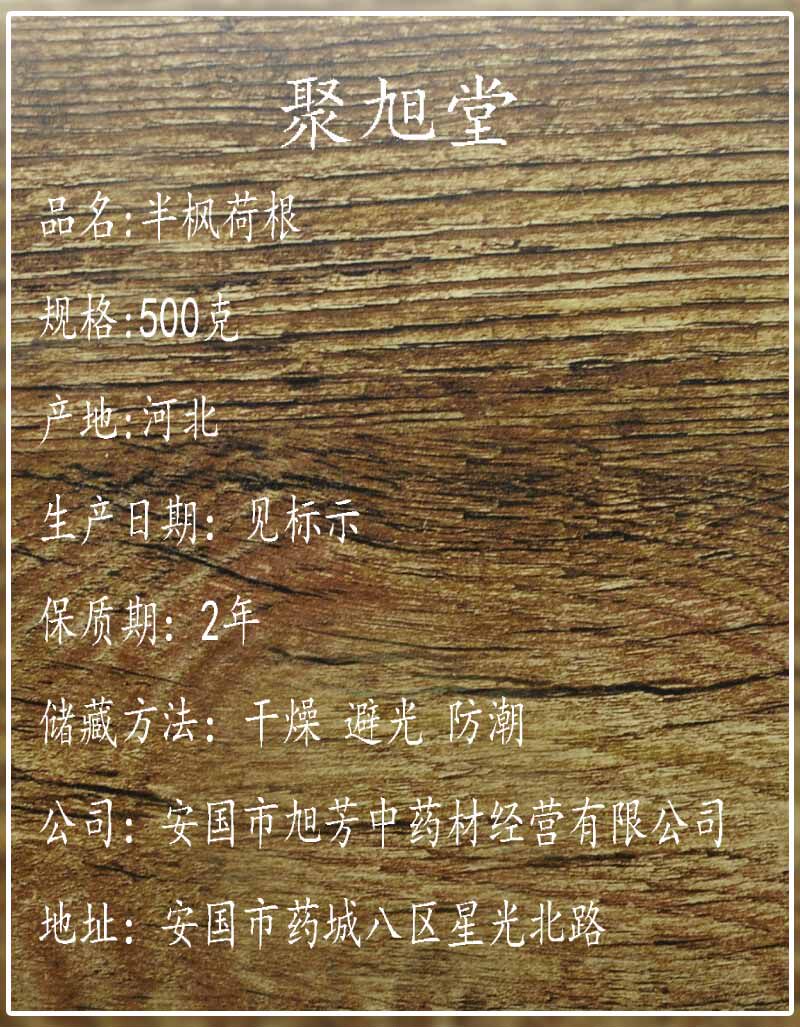 聚旭堂
品名:半枫荷根
规格:500克
产地:河北
生产日期: 见标示
保质期: 2年
储藏方法: 干燥 避光 防潮
公司: 安国市旭芳中药材经营有限公司
地址: 安国市药城八区星光北路